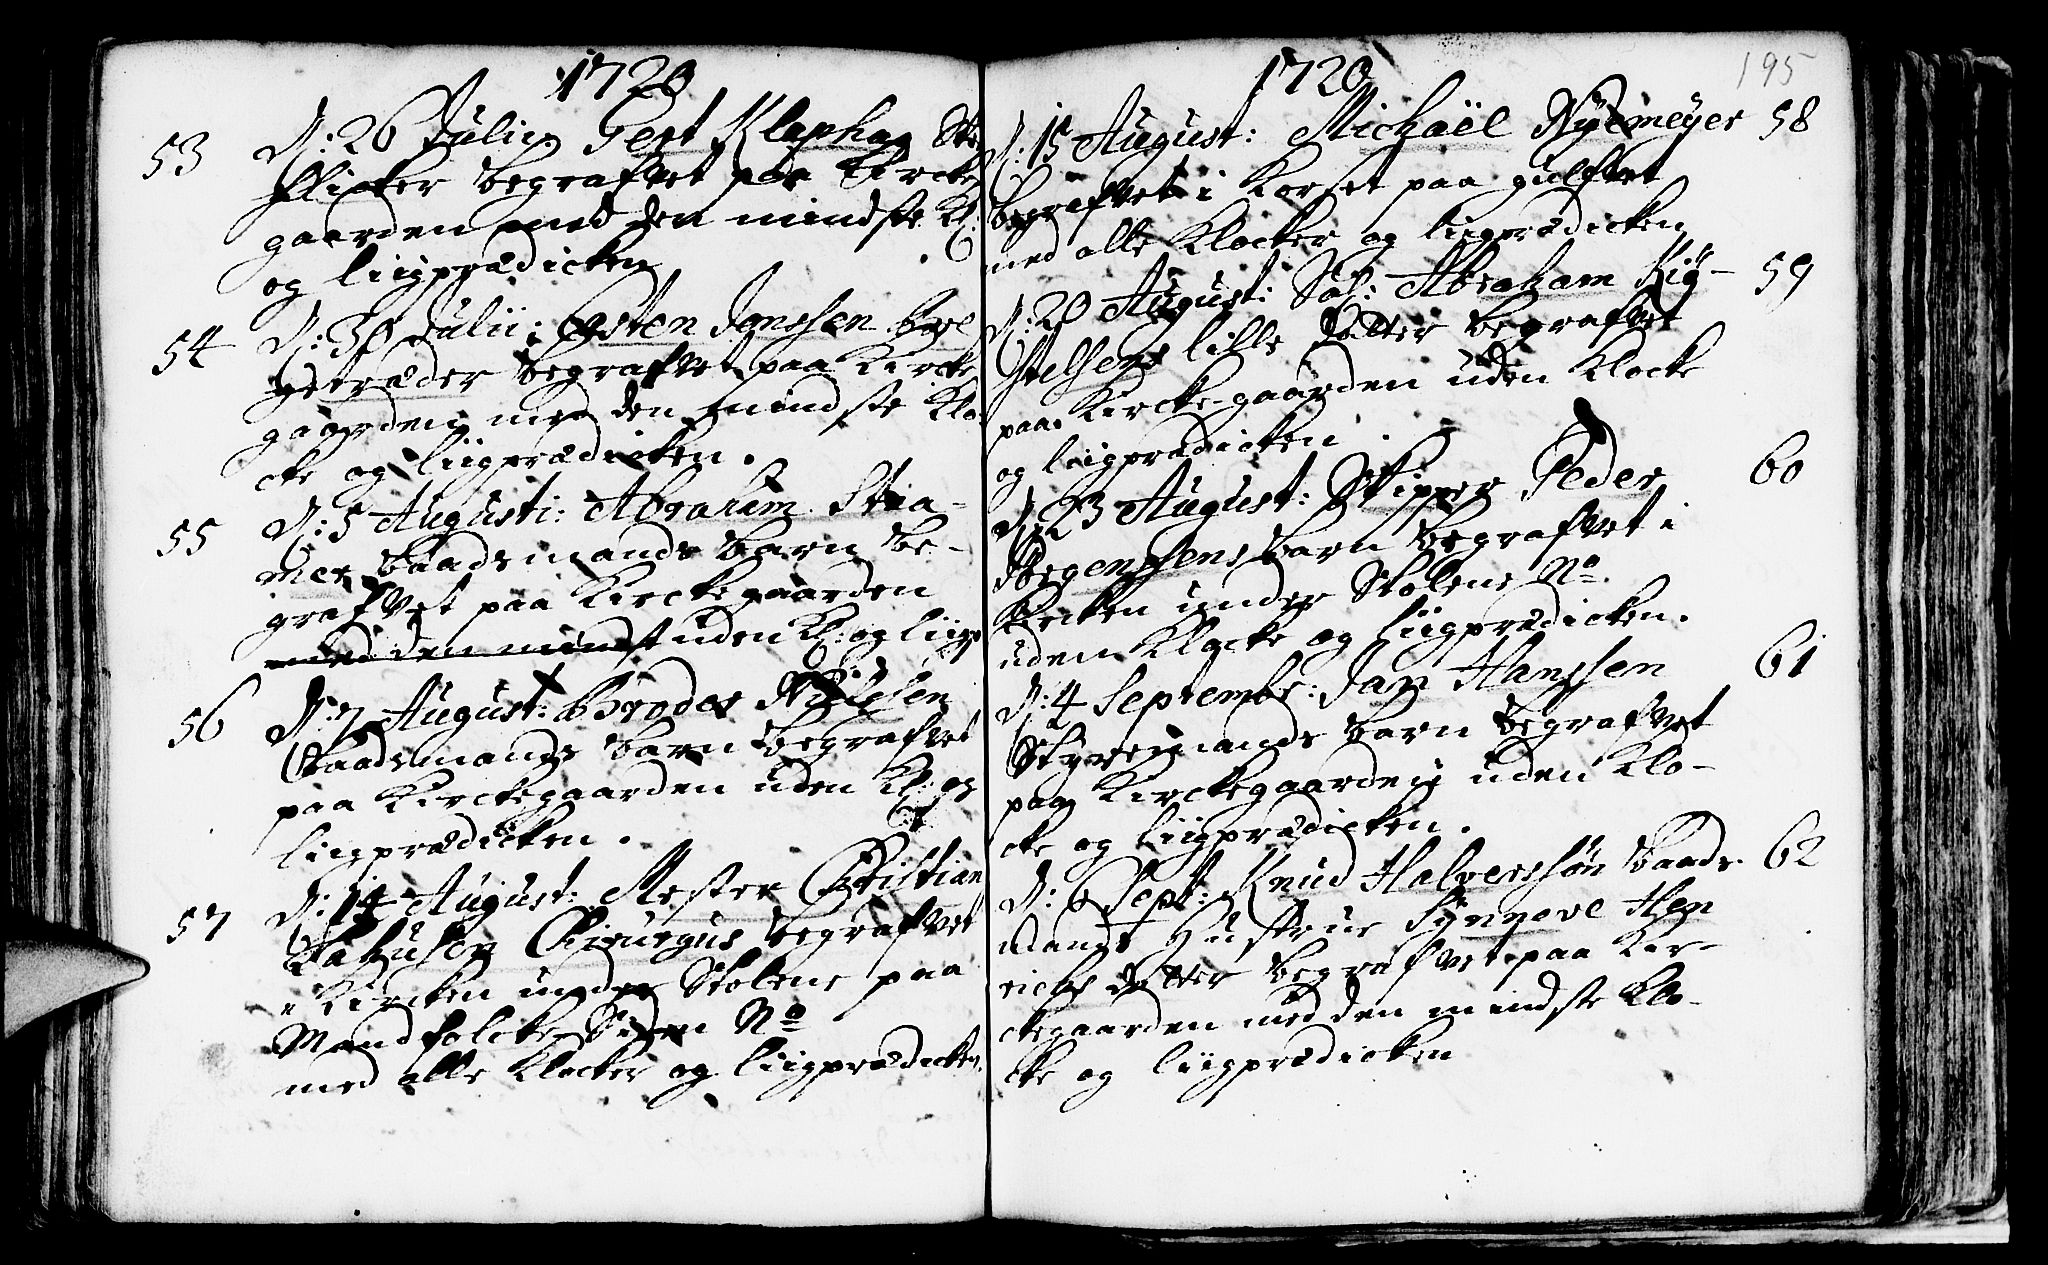 1720
53 D: 26 Julii: Gert Klaphag
flicker begrafvet paa Kircke
gaarden med den mindste Kl:
og liigprædicken
54 D: 30 Julii: Østen Jenssen
træder begrafvet paa Kircke
gaarden med den mindste Klo-
cke og liigprædicken.
55 D: 5 Augusti: Abraham Stia-
mer Baadsmands Barn be-
grafvet paa Kirckegaarden
med den mindst uden Kl: og liigp
56 D: 7 August: Broder Nilesen
Baadsmands Barn begrafvet
paa Kirckegaarden uden Kl: og
liigprædicken.
57 D: 14 August: Mester Christian
Chirurgus begrafvet
i Kircken under Stolene paa
Mandfolcke Siden No
med alle Klocker og liigprædicken.
195
1720
D: 15 August: Michaël Nyemeyer 58
begrafvet i Korset paa gulfvet
med alle Klocker og liigprædicken
D: 20 August: Sal: Abraham Kiy- 59
stelsens lille Datter begrafvet
paa Kircke-gaarden uden Klocke
og liigprædicken
D: 23 August: Skipper Peder 60
Barn begrafvet i
Kircken under Stolene No
uden Klocke og liigprædicken.
D: 4 Septembr: Jan Hanssen 61
Styremands Barn begrafvet
paa Kirckegaarden uden Klo-
cke og liigprædicken.
D: 6 Sept: Knud Halverssøn Baads- 62
mands Hustrue Synnove Hen
richs datter begrafvet paa Kir-
ckegaarden med den mindste Klo-
cke og liigprædicken